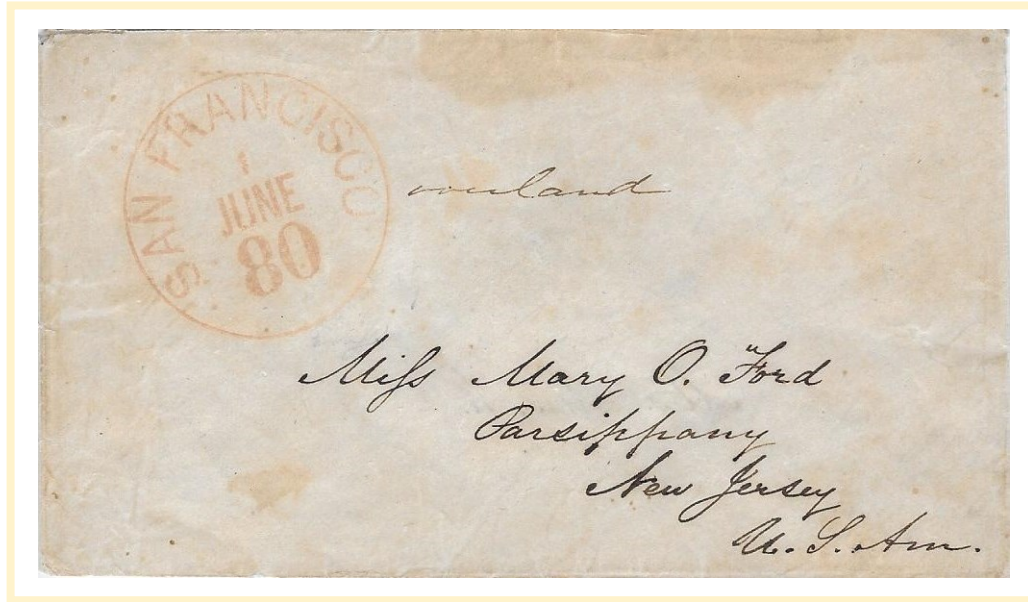 SAN FRANCISCO
1
JUNE
80
overland
Miſs Mary O. Ford
Parsippany
New Jersey
U. S. Am.